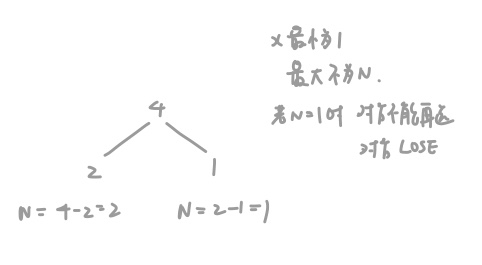 x最小为1
最大不为N.
若N=1时 对方不能再选
对方 LOSE
4
2 1
N= 4-2=2 N=2-1=1